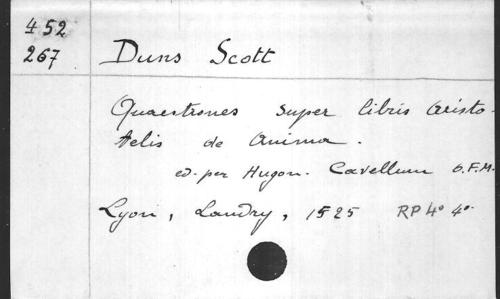 452
267
Duns Scott
Quaestiones super libris Aristo-
telis de Anima.
ed. per Hugon. Cavellum O.F.M.
Lyon, Landry, 1525 RP 4º 4º